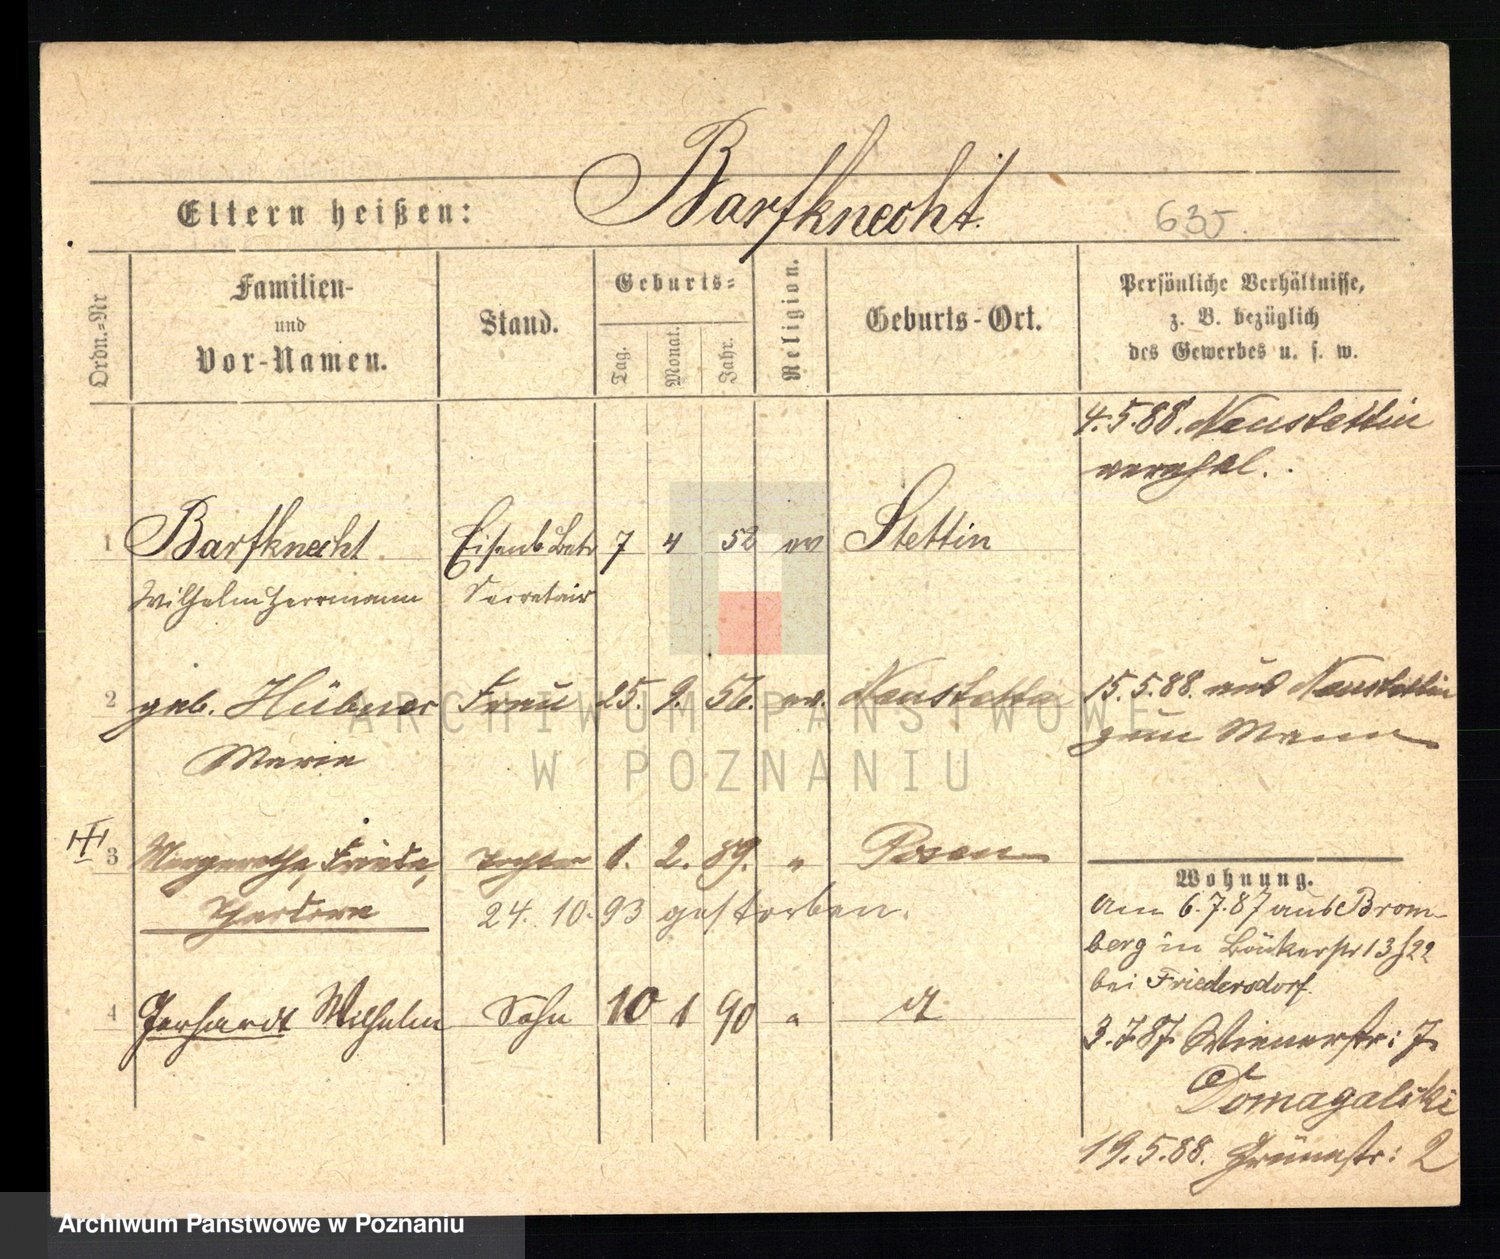 Barfknecht.
Eltern heißen:
635.
Ordn.=Nr
Familien-
und
Vor-Namen.
Stand.
Geburts=
Tag.
Monat.
Jahr.
Religion.
Geburts-Ort.
Persönliche Verhältnisse,
z. B. bezüglich
des Gewerbes u. s. w.
4.5.88. Neustettin
verehel.
1 Barfknecht Eisenb Betr 7 4 52 ev Stettin
Wilhelm Herrmann Secretair
2 geb. Hübner Frau 25. 9. 56. ev. Neustettin
Marie
15.5.88. aus Neustettin
zum Mann
3 Margarethe, Frieda, Tochter 1. 2. 89. " Posen
24. 10. 93 gestorben.
4 Gerhardt Wilhelm Sohn 10 1 90 "
Wohnung.
Am 6.7.87 aus Brom-
berg in Bäckerstr 13
bei Friedersdorf.
3.7.87. Wienerstr: 7.
Domagalski
19.5.88. Grünestr: 2
ARCHIWUM PAŃSTWOWE
W POZNANIU
Archiwum Państwowe w Poznaniu